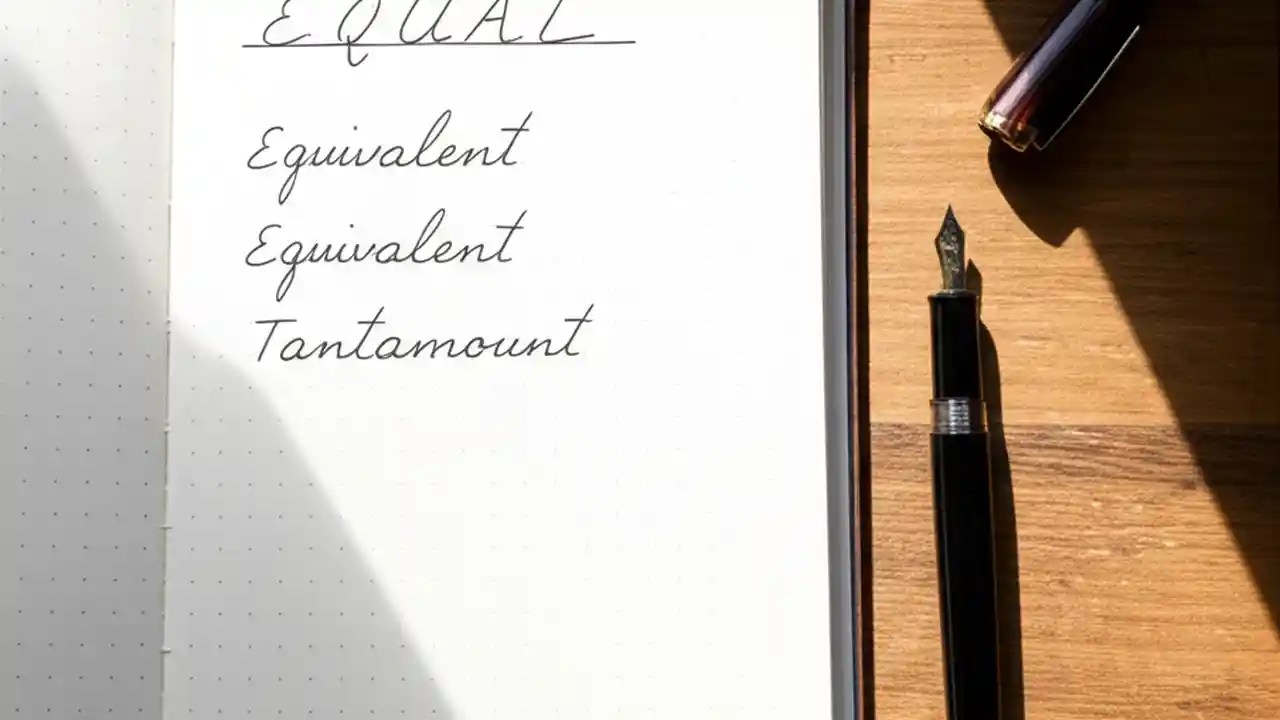 EQUAL
Equivalent
Equivalent
Tantamount